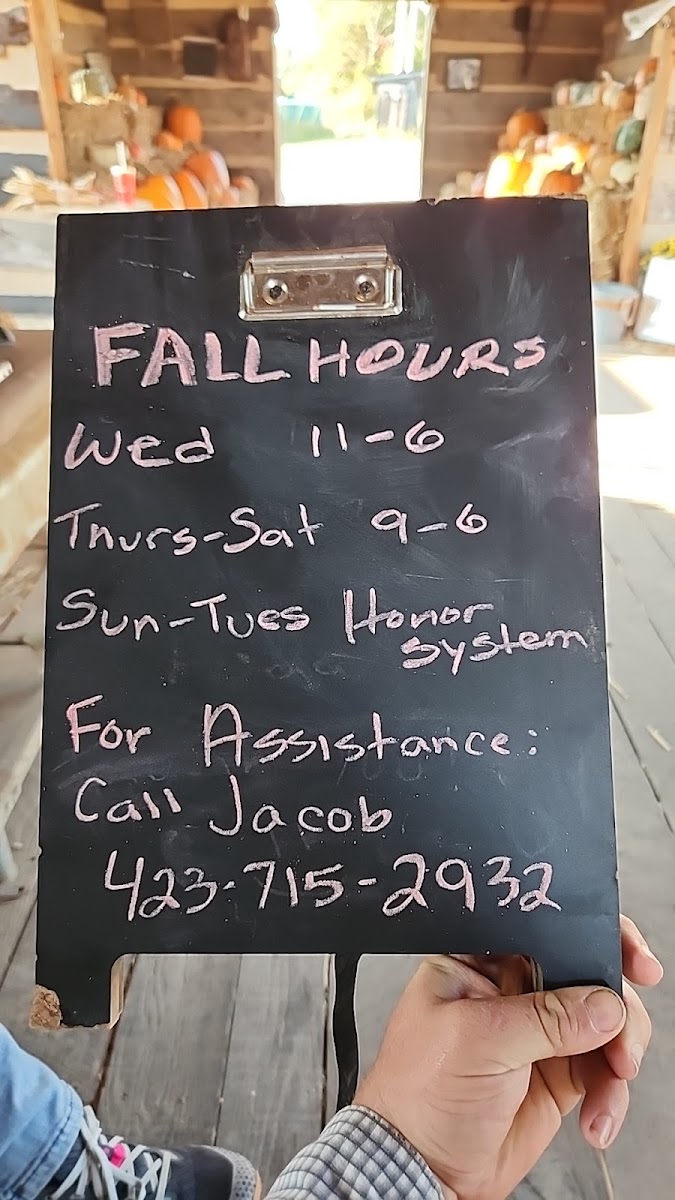 FALL HOURS
Wed 11-6
Thurs-Sat 9-6
Sun-Tues Honor
system
For Assistance:
Call Jacob
423-715-2932